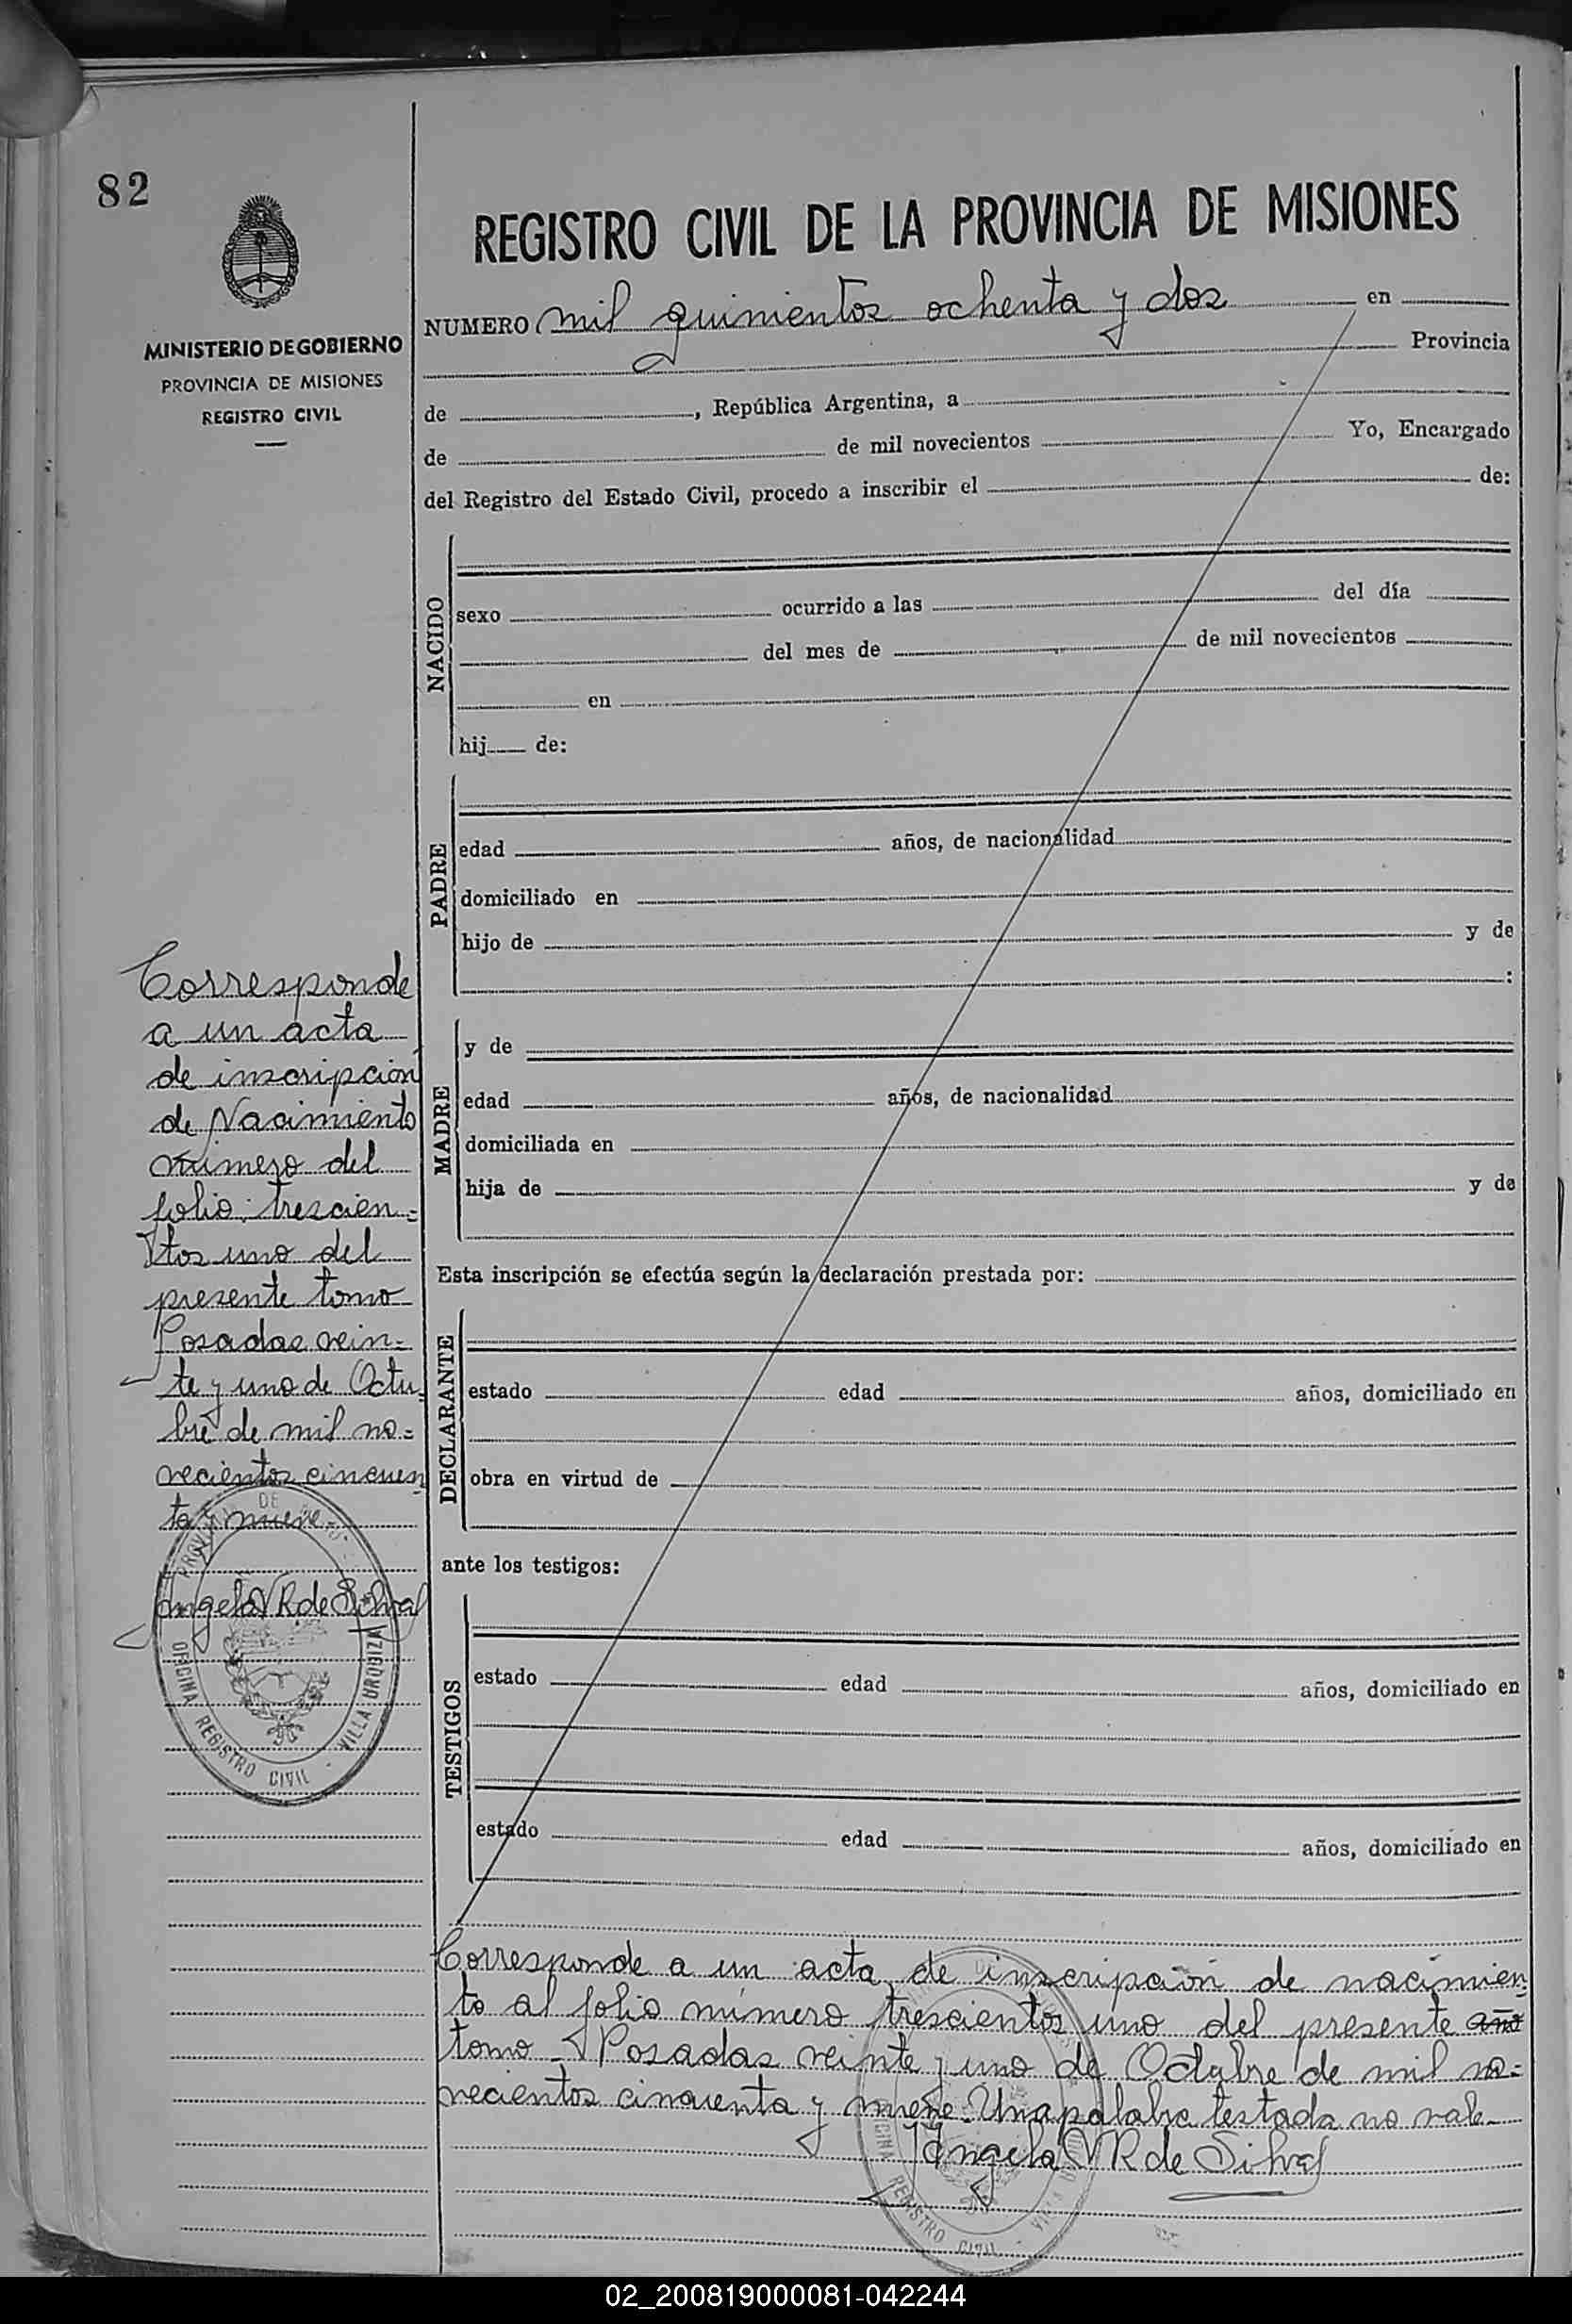 82
MINISTERIO DE GOBIERNO
PROVINCIA DE MISIONES
REGISTRO CIVIL
REGISTRO CIVIL DE LA PROVINCIA DE MISIONES
NUMERO mil quinientos ochenta y dos en
Provincia
de , República Argentina, a
de de mil novecientos Yo, Encargado
del Registro del Estado Civil, procedo a inscribir el de:
NACIDO
sexo ocurrido a las del día
del mes de de mil novecientos
en
hij de:
PADRE
edad años, de nacionalidad
domiciliado en
hijo de y de
:
MADRE
y de
edad años, de nacionalidad
domiciliada en
hija de y de
Esta inscripción se efectúa según la declaración prestada por:
DECLARANTE
estado edad años, domiciliado en
obra en virtud de
ante los testigos:
TESTIGOS
estado edad años, domiciliado en
estado edad años, domiciliado en
Corresponde a un acta de inscripción de nacimien-
to al folio número trescientos uno del presente año
tomo. Posadas veinte y uno de Octubre de mil no=
vecientos cincuenta y nueve. Una palabra testada no vale.
Angela V R de Silva
Corresponde
a un acta
de inscripción
de Nacimiento
número del
folio: trescien=
tos uno del
presente tomo
Posadas vein=
te y uno de Octu-
bre de mil no=
vecientos cincuen
ta y nueve
Angela V R de Silva
PROVINCIA DE
OFICINA REGISTRO CIVIL - VILLA URQUIZA
OFICINA REGISTRO CIVIL - VILLA
02_200819000081-042244